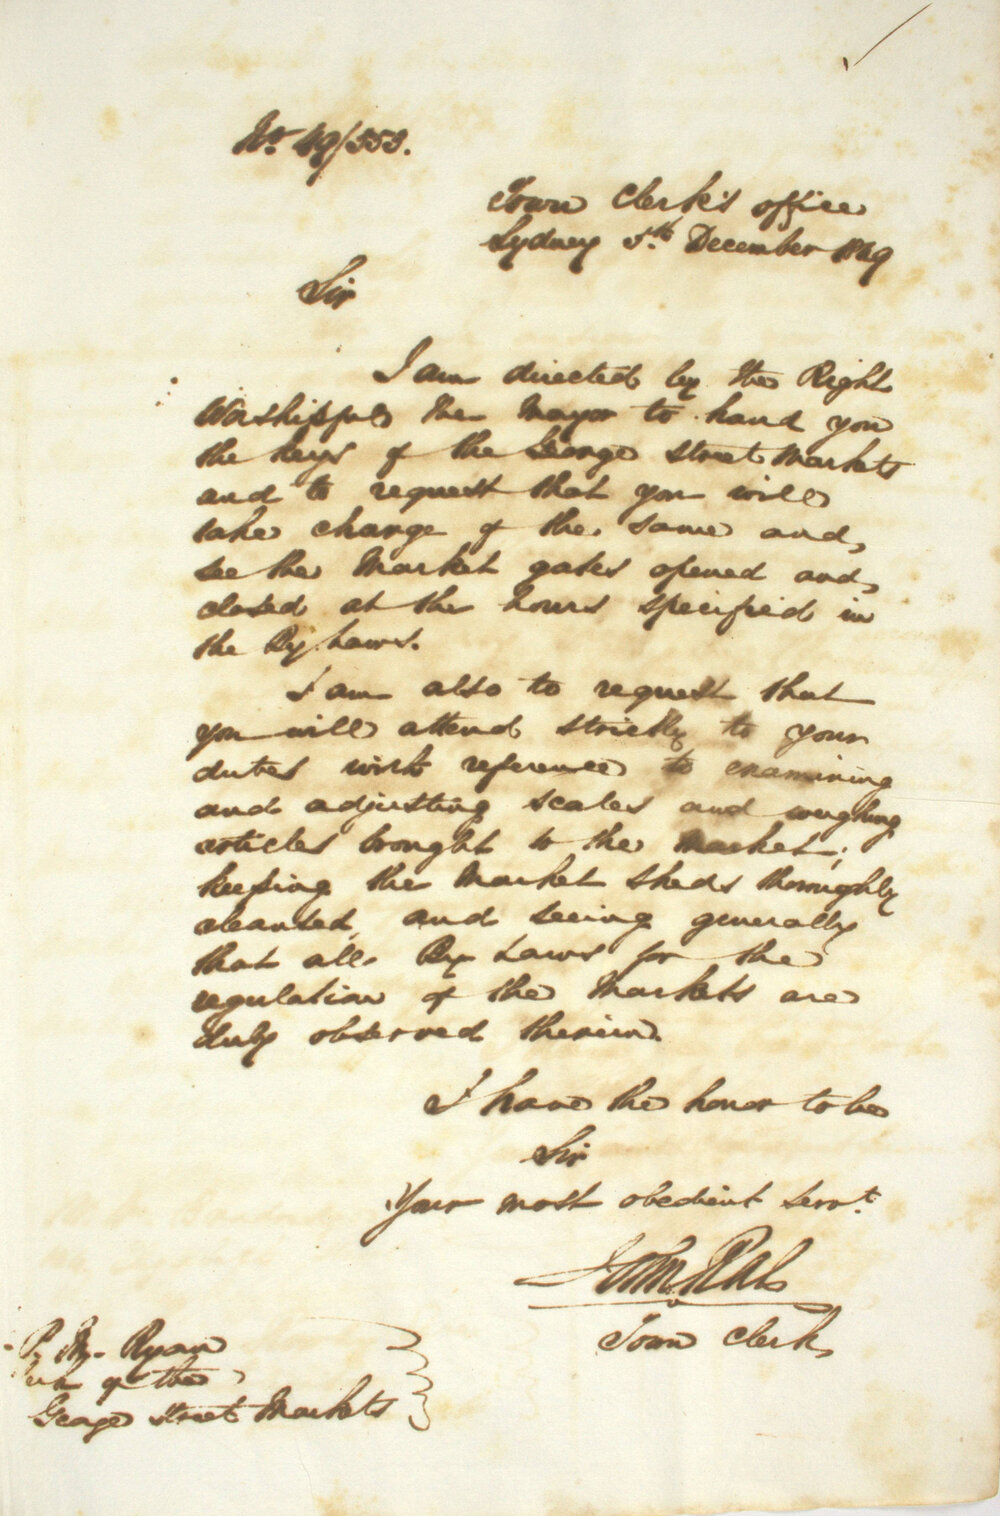 No. 49/553.
Town Clerk's office
Sydney 5th December 1849
Sir
I am directed by the Right
Worshipful the Mayor to hand you
the keys of the George Street Markets
and to request that you will
take charge of the same and,
see the Market gates opened and,
closed at the hours specified in
the By Laws.
I am also to request that
you will attend strictly to your
duties with reference to examining
and adjusting scales and weighing
articles brought to the Market;
keeping the Market sheds thoroughly
cleansed, and seeing generally
that all By Laws for the
regulation of the Markets are
duly observed therein.
I have the honor to be
Sir
Your most obedient servt.
John
Town Clerk,
Ryan
of the
George Street Markets